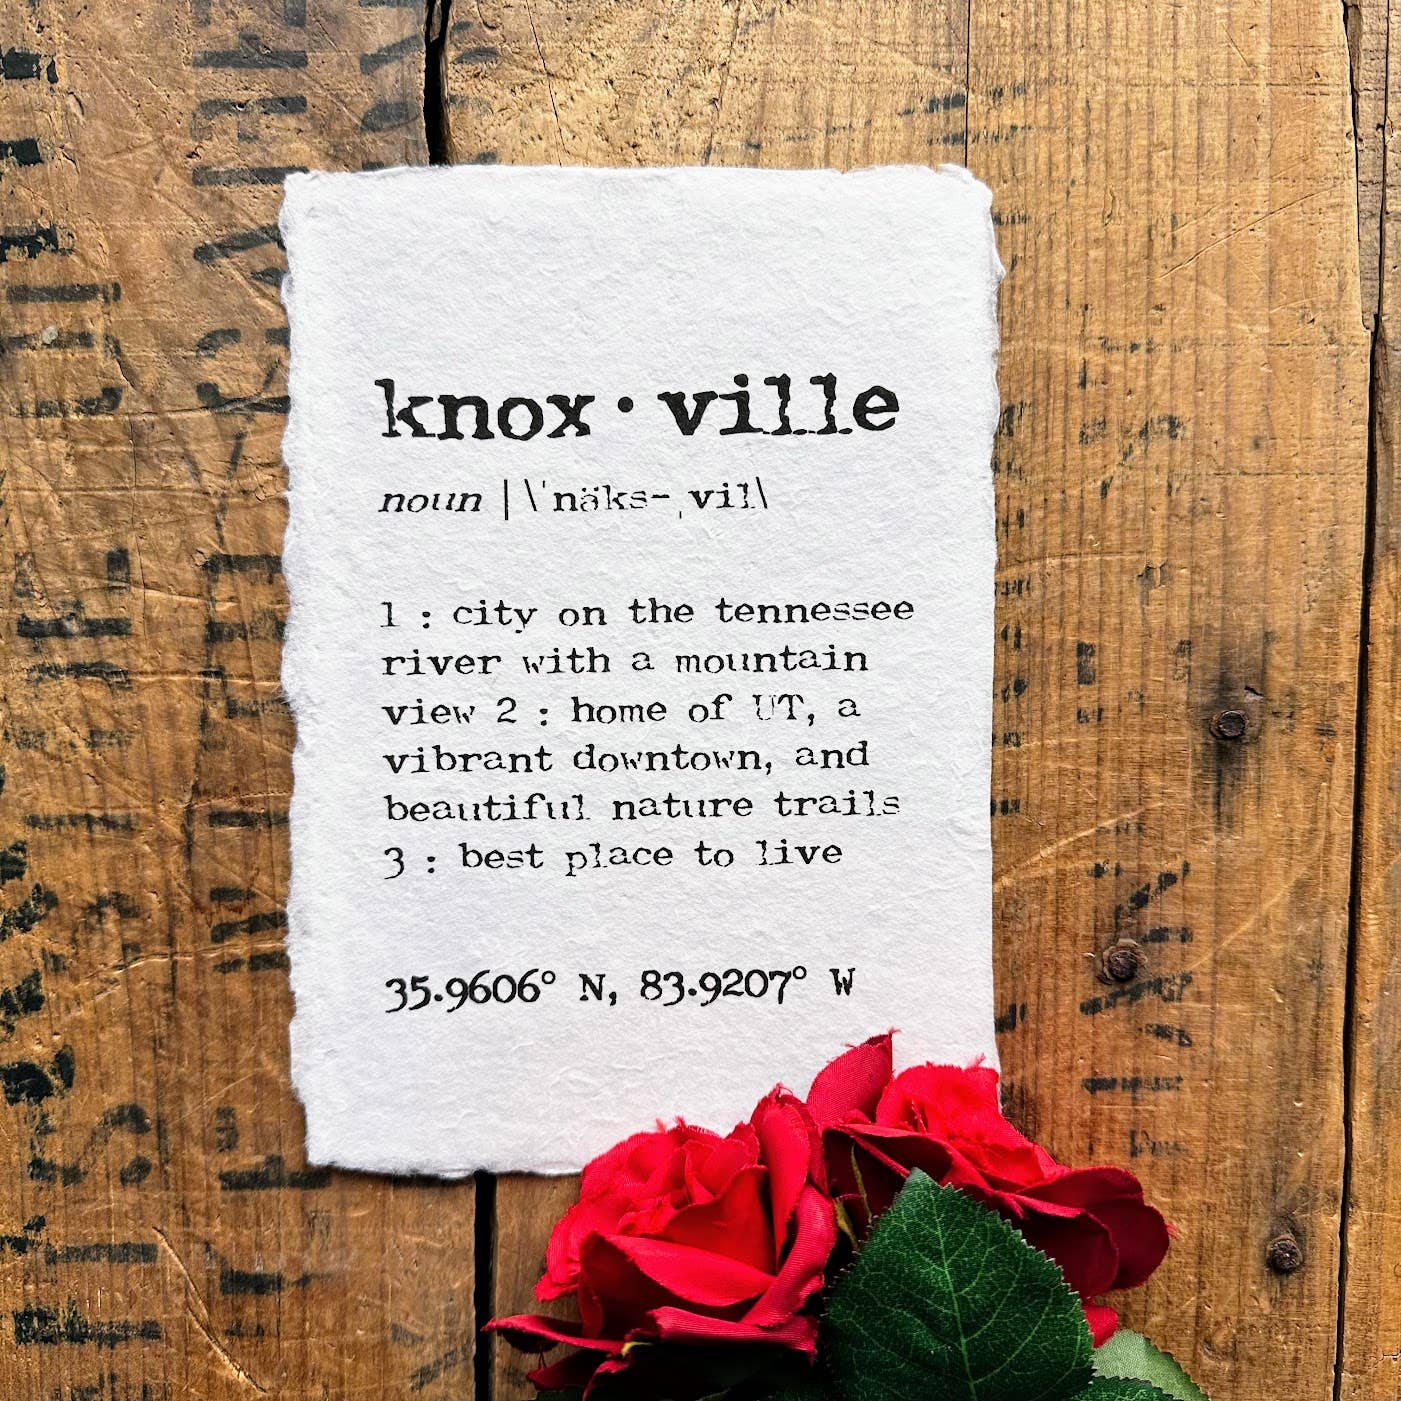 knox·ville
noun | \ˈnäks-ˌvil\
1 : city on the tennessee
river with a mountain
view 2 : home of UT, a
vibrant downtown, and
beautiful nature trails
3 : best place to live
35.9606° N, 83.9207° W